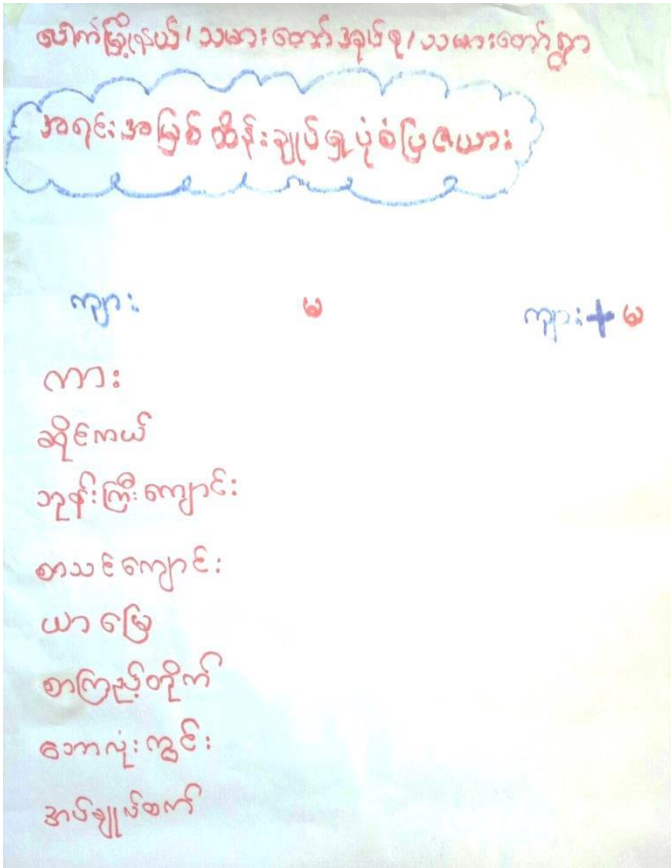 ပေါက်မြို့နယ်/သမားတော်အုပ်စု/သမားတော်ရွာ
အရင်းအမြစ်ထိန်းချုပ်မှုပုံစံပြဇယား
ကျား မ ကျား+မ
ကား
ဆိုင်ကယ်
ဘုန်းကြီးကျောင်း
စာသင်ကျောင်း
ယာမြေ
စာကြည့်တိုက်
ဘောလုံးကွင်း
အပ်ချုပ်စက်